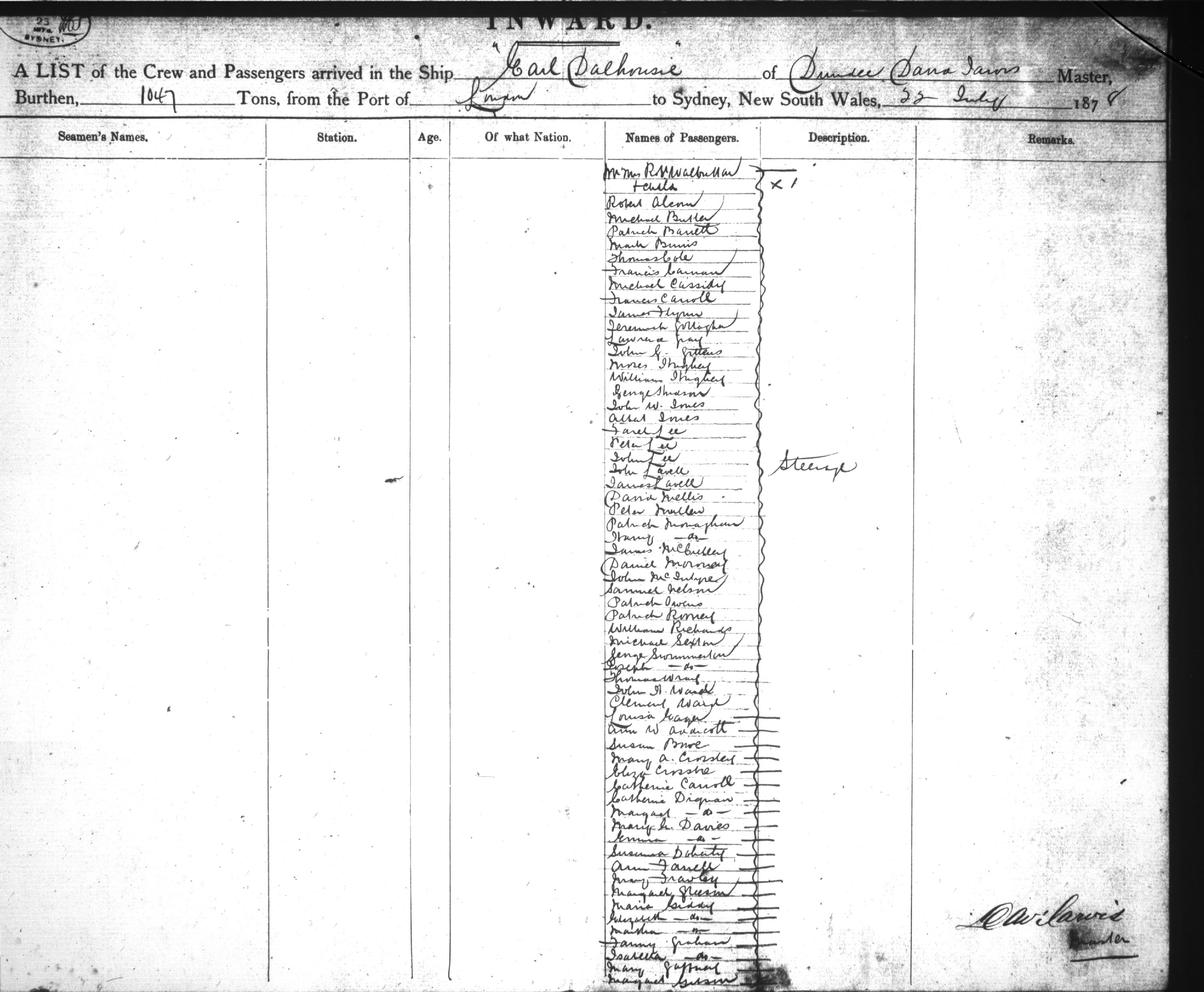 23
SYDNEY.
INWARD.
A LIST of the Crew and Passengers arrived in the Ship "Earl Dalhousie" of Dundee David Jarvis Master,
Burthen, 1047 Tons, from the Port of London to Sydney, New South Wales, 22 July 1878
Seamen's Names. Station. Age. Of what Nation. Names of Passengers. Description. Remarks.
Mr Mrs R
+ child x 1
Robert Alcorn
Michael Butler
Patrick Barrett
Mark Burns
Thomas Cole
Francis
Michael Cassidy
Francis Carroll
James Flynn
Jeremiah
Lawrence Gray
John G.
Moses Hughey
William Hughey
George Hudson
John W. Jones
Albert Jones
Lee
Peter Lee
John Lee
Steerage
John Lavell
James Lavell
David Mellis
Peter Mullen
Patrick Monaghan
Harry — do —
James
Daniel Moroney
John McIntyre
Samuel Nelson
Patrick Owens
Patrick Romey
William Richards
Michael Sexton
George Swinnerton
Joseph — do —
Thomas Wray
John H. Ward
Clement Ward
Louisa
Ann W
Susan
Mary A. Crossley
Eliza
Catherine Carroll
Catherine Dignan
Margaret — do —
Mary Davies
Emma — do —
Susanna Doherty
Ann Farrell
Mary Frawley
Margaret
Maria Giddy
Elizabeth — do —
Martha — do —
Fanny Graham
Isabella — do —
Mary Gaffney
Margaret
Jarvis
Master